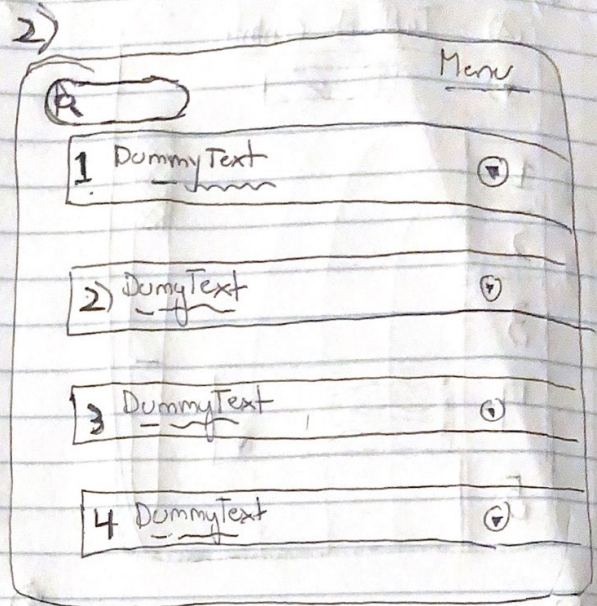 2)
Menu
1 DummyText
2) DumyText
3 DummyText
4 DummyText